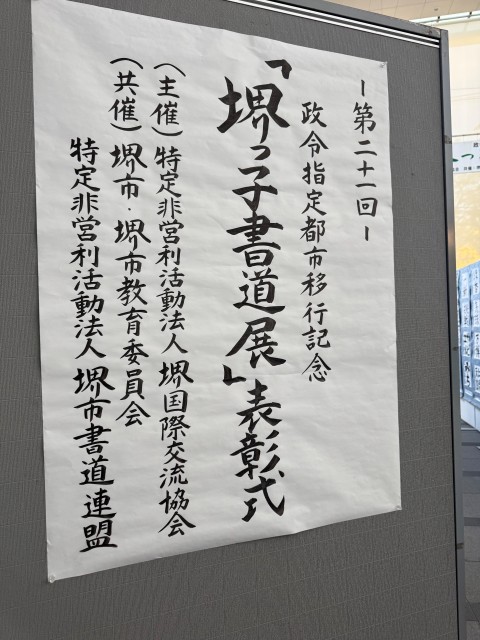 ー第二十一回ー
政令指定都市移行記念
「堺っ子書道展」表彰式
（主催）特定非営利活動法人 堺国際交流協会
（共催）堺市・堺市教育委員会
特定非営利活動法人 堺市書道連盟